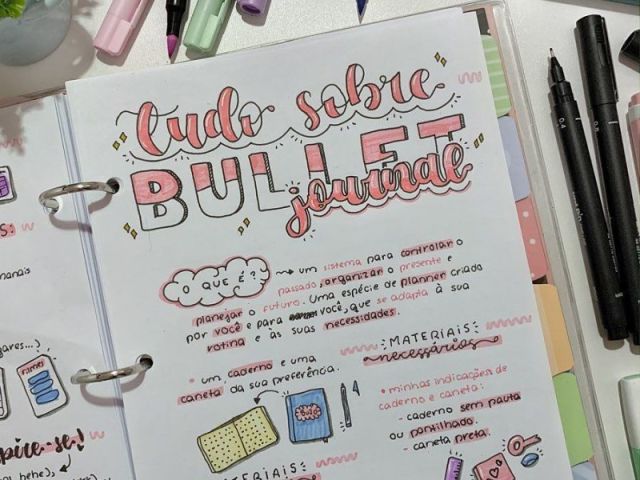 tudo sobre
BULLET
journal
O QUE É?
→ um sistema para controlar o
passado, organizar o presente e
planejar o futuro. Uma espécie de planner criado
por você e para você, que se adapta à sua
rotina e às suas necessidades.
• um caderno e uma
caneta da sua preferência.
MATERIAIS
necessários
• minhas indicações de
caderno e caneta:
- caderno sem pauta
ou pontilhado.
- caneta preta.
MATERIAIS
0.4